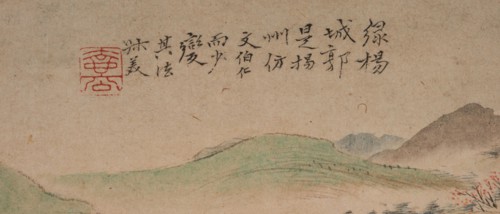 綠楊
城郭
是揚
州仿
文伯仁
而少
變
其法
美